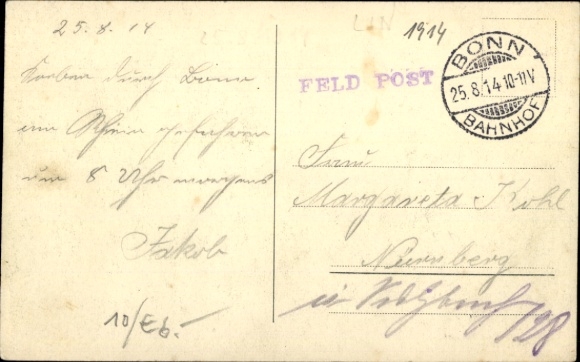 25.8.14
Soeben durch Bonn
am Rhein gefahren
um 8 Uhr morgens
Jakob
10/E6.-
LIN
1914
FELD POST
BONN
25.8.14.10-11V
BAHNHOF
Frau
Margareta Kohl
Nürnberg
128